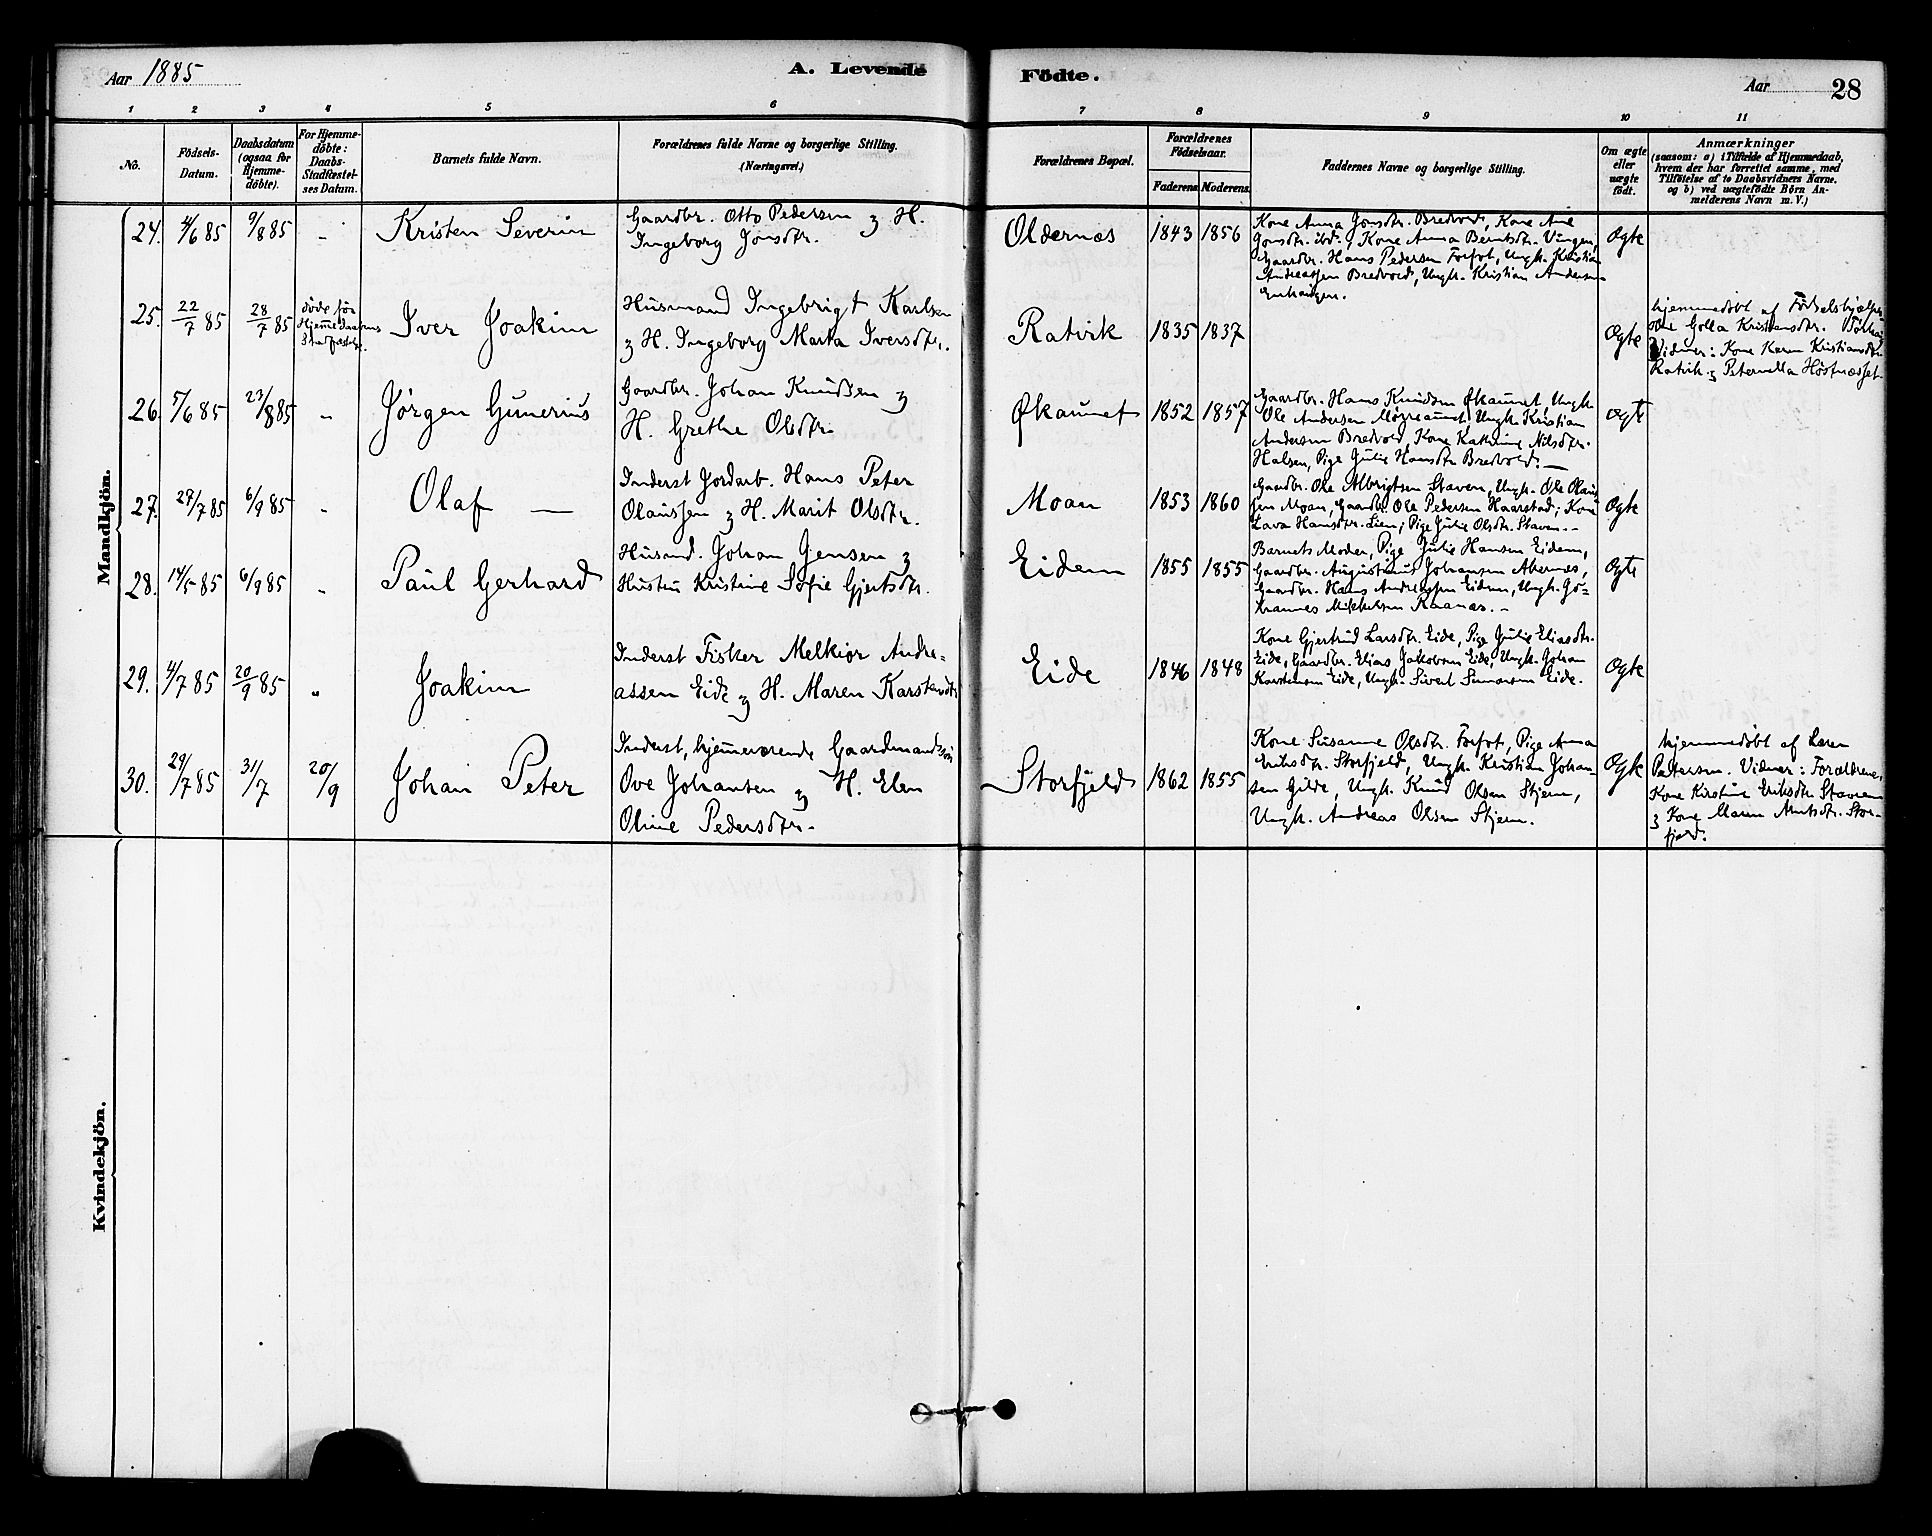 Aar 1885
A. Levende
Födte.
Aar
28
1 2 3 4 5 6 7 8 9 10 11
No.
Födsels-
Datum.
Daabsdatum
(ogsaa for
Hjemme-
döbte).
For Hjemme-
döbte:
Daabs-
Stadfæstel-
ses Datum.
Barnets fulde Navn.
Forældrenes fulde Navne og borgerlige Stilling.
(Næringsvei.)
Forældrenes Bopæl.
Forældrenes
Födselsaar.
Faderens Moderens
Faddernes Navne og borgerlige Stilling.
Om ægte
eller
uægte
födt.
Anmærkninger
(saasom: a) i Tilfælde af Hjemmedaab,
hvem der har forrettet samme, med
Tilföielse af to Daabsvidners Navne.
og b) ved uægtefödte Börn An-
melderens Navn m. V.)
Mandkjön.
24. 4/6 85 9/8 85 „
Kristen Severin
Gaardbr. Otto Pedersen og H.
Ingeborg Jonsdtr.
Oldernes 1843 1856
Kone Anna Jonsdtr. Bredvold, Kone Ane
Jonsdtr. ibd., Kone Anna Berntsdtr. Vingen,
Gaardbr. Hans Pedersen Forfot, Ungk. Kristian
Andreassen Bredvold, Ungk. Kristian Andersen
Ægte
25. 22/7 85 28/7 85
döde för
Hjemmedaabens
Stadfæstelse.
Iver Joakim
Husmand Ingebrigt Karlsen
og H. Ingeborg Marta Iversdtr.
Ratvik 1835 1837
Ægte
hjemmedöbt af Födselshjælper-
Golla Kristensdtr.
Vidner: Kone Karen Kristiansdtr.
Ratvik og Peternella Höstnesset.
26. 5/6 85 23/8 85 „
Jörgen Gunerius
Gaardbr. Johan Knudsen og
H. Grethe Olsdtr.
Økaunet 1852 1857
Gaardbr. Hans Knudsen Økaunet, Ungk.
Ole Andersen Møgreaunet, Ungk. Kristian
Andersen Bredvold, Kone Kathrine Nilsdtr.
Halsen, Pige Julie Hansdtr. Bredvold. —
Ægte
27. 27/7 85 6/9 85 „
Olaf —
Inderst Jordarb. Hans Peter
Olaussen og H. Marit Olsdtr.
Moan 1853 1860
Gaardbr. Ole Albrigtsen Staven, Ungk. Ole Olaus-
sen Moan, Gaardbr. Ole Pedersen Haarstad; Kone
Lava Hansdtr. Lien; Pige Julie Olsdtr. Staven. -
Ægte
28. 14/5 85 6/9 85 „
Paul Gerhard
Husmd. Johan Jensen og
Hustru Kristine Sofie Gjertsdtr.
Eidem 1855 1855
Barnets Moder, Pige Julie Hansen Eidem,
Gaardbr. Augustinus Johansen Abernes,
Gaardbr. Hans Andreassen Eidem, Ungk. Jo-
hannes Mikkelsen Raanes. -
Ægte
29. 4/7 85 20/9 85 „
Joakim
Inderst Fisker Melkior Andre-
assen Eide og H. Maren Karstensdtr.
Eide 1846 1848
Kone Gjertrud Larsdtr. Eide, Pige Julie Eliasdtr.
Eide, Gaardbr. Elias Jakobsen Eide, Ungk. Johan
Karstensen Eide, Ungk. Sivert Simonsen Eide.
Ægte
30. 29/7 85 31/7 20/9
Johan Peter
Inderst, hjemmeværende Gaardmandssön
Ove Johansen og H. Elen
Oline Pedersdtr.
Storfjeld 1862 1855
Kone Susanne Olsdtr. Forfot, Pige Anna
Eriksdtr. Storfjeld, Ungk. Kristian Johan-
sen Gilde, Ungk. Knud Olsen Stjern,
Ungk. Andreas Olsen Stjern.
Ægte
hjemmedöbt af Lærer
Pettersen. Vidner: Forældrene,
Kone Kirstine Eriksdtr. Stavnen
og Kone Maren Arntsdtr. Stor-
fjeld.
Kvindekjön.